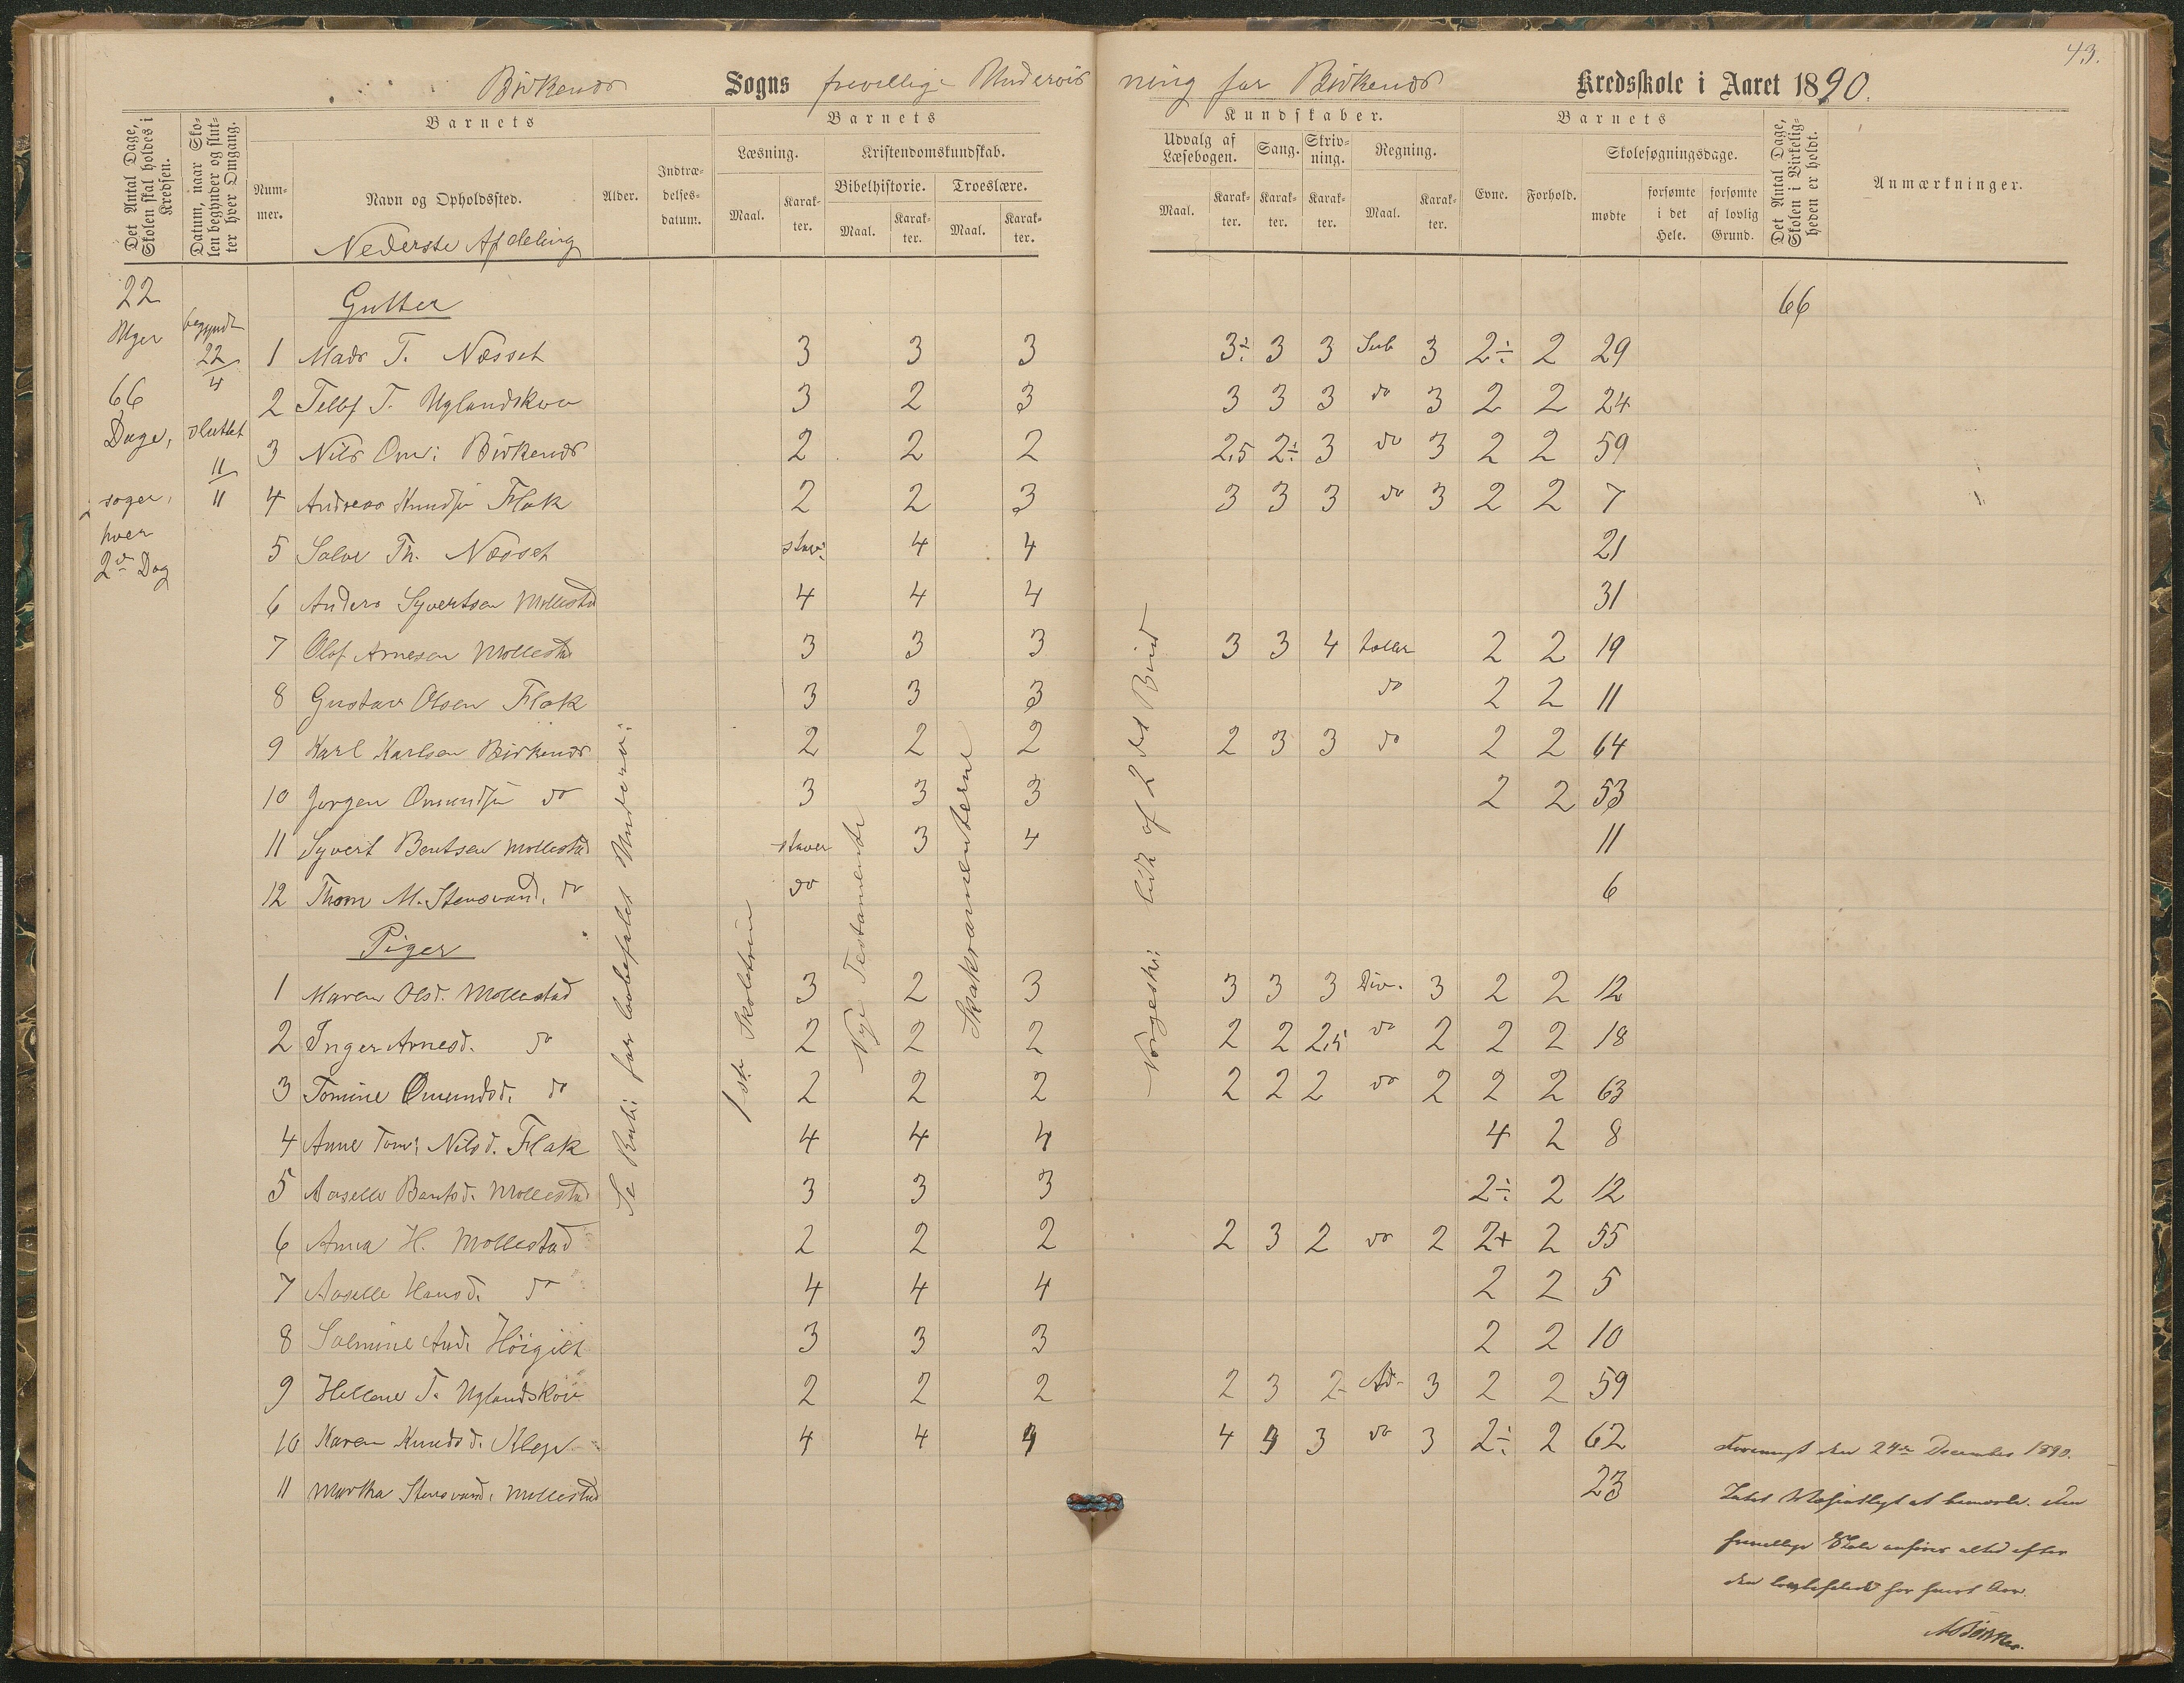 43.
Birkenes Sogns frivillige Undervisning for Birkenes Kredsskole i Aaret 1890.
Det Antal Dage, Skolen skal holdes i Kredsen.
Datum, naar Skolen begynder og slutter hver Omgang.
Barnets
Nummer.
Navn og Opholdssted.
Nederste Afdeling
Alder.
Indtrædelsesdatum.
Barnets
Læsning.
Maal.
Karakter.
Kristendomskundskab.
Bibelhistorie.
Maal.
Karakter.
Troeslære.
Maal.
Karakter.
Kundskaber.
Udvalg af Læsebogen.
Maal.
Karakter.
Sang.
Karakter.
Skrivning.
Karakter.
Regning.
Maal.
Karakter.
Barnets
Evne.
Forhold.
Skolesøgningsdage.
mødte
forsømte i det Hele.
forsømte af lovlig Grund.
Det Antal Dage, Skolen i Virkeligheden er holdt.
Anmærkninger.
22
Uger
66
Dage,
søger
hver
2den Dag
begyndt
22
4
sluttet
11
11
66
Gutter
1 Mads T. Næsset 3 3 3 3÷ 3 3 Sub 3 2÷ 2 29
2 Tellef T. Uglandskov 3 2 3 3 3 3 do 3 2 2 24
3 Nils Om: Birkenes 2 2 2 2,5 2÷ 3 do 3 2 2 59
4 Andreas Knudsen Flak 2 2 3 3 3 3 do 3 2 2 7
5 Salve Th. Næsset stav: 4 4 21
6 Anders Syvertsen Mollestad 4 4 4 31
7 Olaf Arnesen Mollestad 3 3 3 3 3 4 tæller 2 2 19
8 Gustav Olsen Flak 3 3 3 do 2 2 11
9 Karl Karlsen Birkenes 2 2 2 2 3 3 do 2 2 64
10 Jørgen Omundsen do 3 3 3 2 2 53
11 Syvert Bentsen Mollestad staver 3 4 11
12 Thom M. Stensvand. do do 6
Piger
1 Maren Olsd. Mollestad 3 2 3 3 3 3 Div. 3 2 2 12
2 Inger Arnesd. do 2 2 2 2 2 2,5 do 2 2 2 18
3 Tomine Omundsd. do 2 2 2 2 2 2 do 2 2 2 63
4 Anne Tom: Nilsd. Flak 4 4 4 4 2 8
5 Aaselle Bentsd. Mollestad 3 3 3 2÷ 2 12
6 Anna H. Mollestad 2 2 2 2 3 2 do 2 2+ 2 55
7 Aaselle Hansd. do 4 4 4 2 2 5
8 Salmine And. Høigilt 3 3 3 2 2 10
9 Hellene T. Uglandskov 2 2 2 2 3 2 Ad. 3 2 2 59
10 Karen Knudsd. Klep 4 4 4 4 4 3 do 3 2÷ 2 62
11 Martha Stensvand. Mollestad 23
Se Rub: for lovbefalet Underv:
1ste Skoletrin
Nye Testamente
Sakramenterne
Norgeshi: lidt af 2det Bind
Fremlagt den 24de December 1890.
Intet Væsentligt at bemærke. Den
frivillige Skole anføres altid efter
den lovbefalede for hvert Aar.